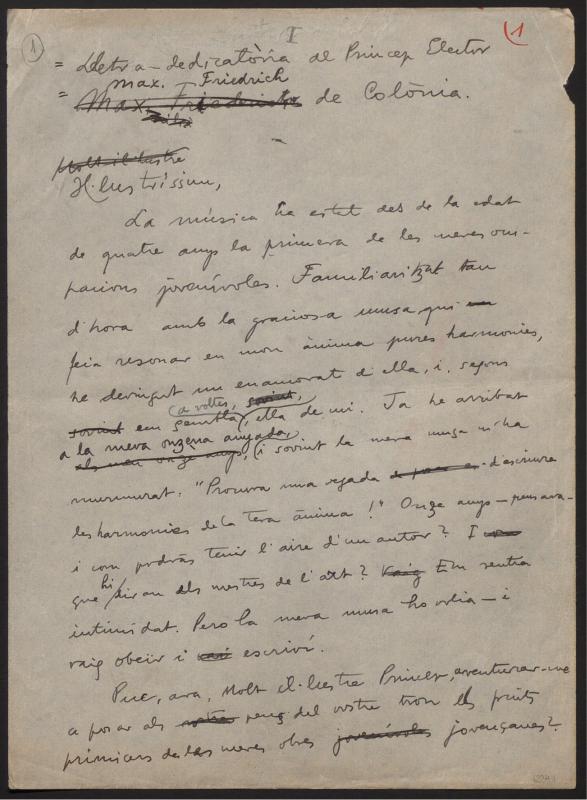 1
I
1
= Lletra-dedicatòria al Príncep Elector
Max. Friedrich
= Max. Friedrich de Colònia.
Molt il·lustre
Il·lustríssim,
La música ha estat des de la edat
de quatre anys la primera de les meves ocu-
pacions jovenívoles. Familiaritzat tan
d'hora amb la graciosa musa qui
feia ressonar en mon ànima pures harmonies,
he devingut un enamorat d'ella, i, segons
(a voltes, sovint,
sovint em sembla, ella de mi. Ja he arribat
a la meva onzena anyada,
als meus onze anys, i sovint la meva musa m'ha
murmurat: "Procura una vegada d'escriure
les harmonies de la teva ànima!" Onze anys—pensava—
i com podràs tenir l'aire d'un autor? I
què hi diran els mestres de l'art? Vaig Em sentia
intimidat. Però la meva musa ho volia — i
vaig obeir i vaig escriví.
Puc, ara, Molt Il·lustre Príncep, aventurar-me
a posar als vostres peus del vostre tron els fruits
primicers de les meves obres jovenívoles jovençanes?